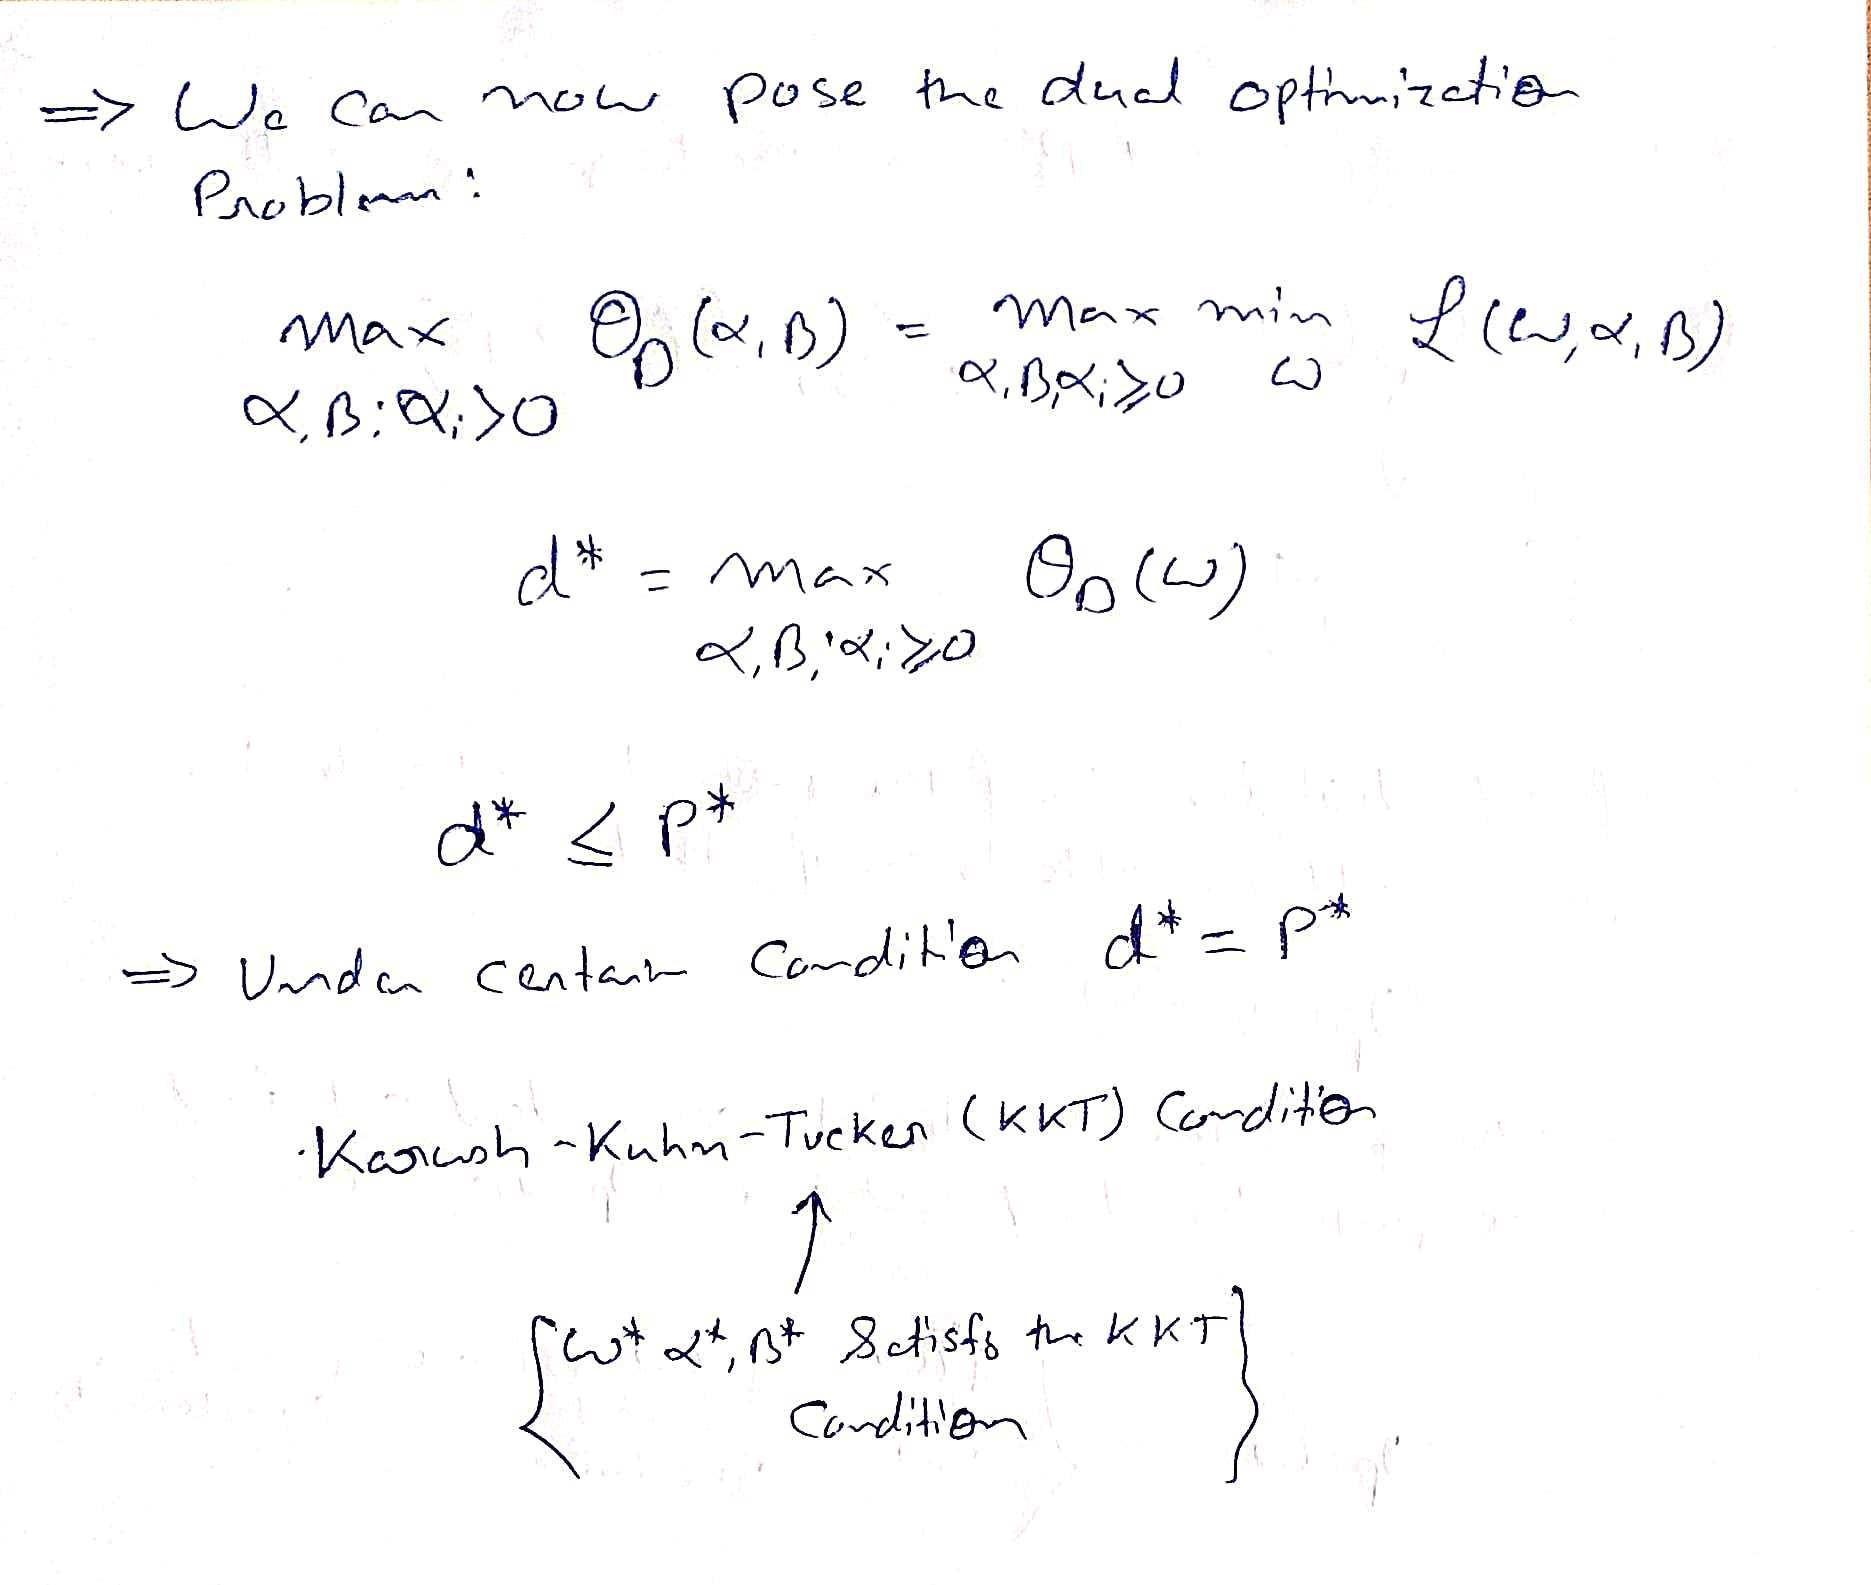 => We can now pose the dual optimization
Problem:
max θ_D(α,β) = max min L(w,α,β)
α,β:αᵢ>0 α,β,αᵢ≥0 w
d* = max θ_D(w)
α,β,:αᵢ≥0
d* ≤ p*
=> Under certain Condition d* = p*
Karush-Kuhn-Tucker (KKT) Condition
↑
{w* α*, β* Satisfy the KKT}
Condition